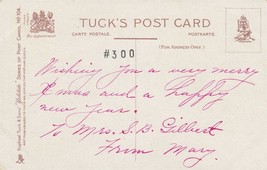 TUCK'S POST CARD
CARTE POSTALE. POSTKARTE.
(FOR ADDRESS ONLY.)
#300
Wishing you a very merry
Xmas and a happy
new year.
To Mrs. S. B. Gilbert
From Mary.
Raphael Tuck & Sons' SERIES OF POST CARDS, NO.